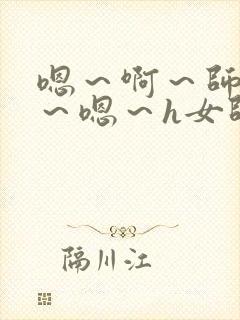 嗯～啊～師
～嗯～h女師
隔川江